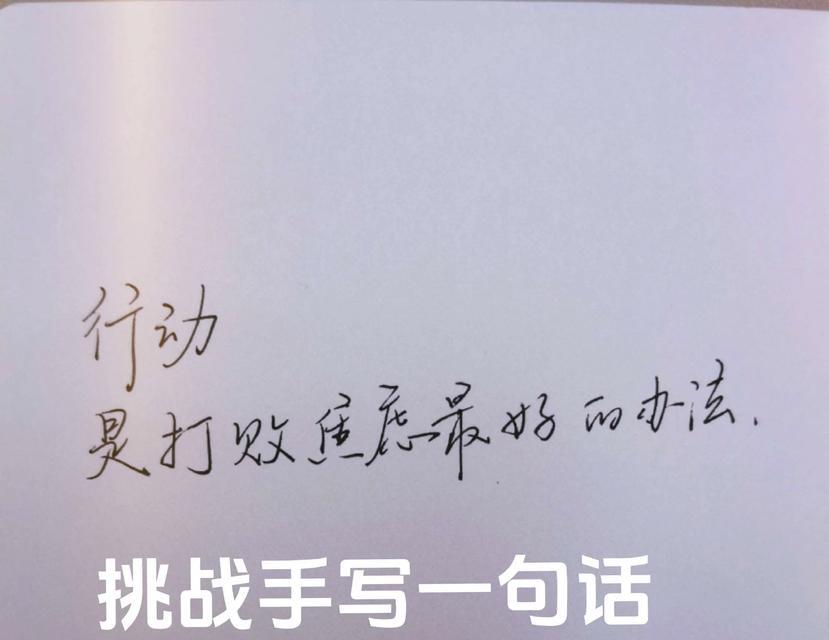 行动
是打败焦虑最好的办法.
挑战手写一句话